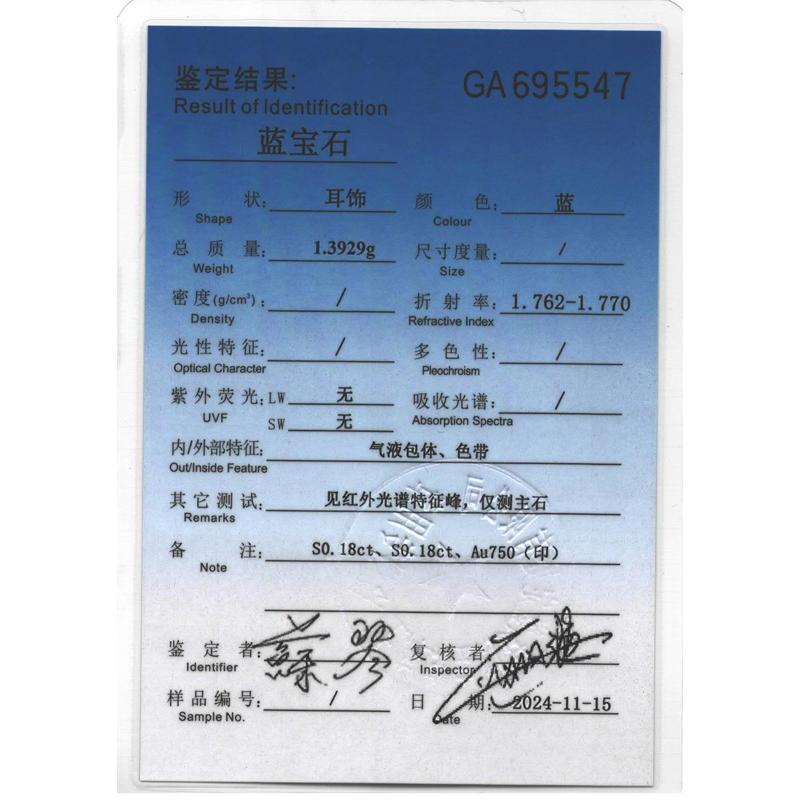 鉴定结果: GA695547
Result of Identification
蓝宝石
形 状: 耳饰 颜 色: 蓝
Shape Colour
总 质 量: 1.3929g 尺寸度量: /
Weight Size
密 度(g/cm³): / 折 射 率: 1.762-1.770
Density Refractive Index
光性特征: / 多 色 性: /
Optical Character Pleochroism
紫外荧光: LW 无 吸收光谱: /
UVF SW 无 Absorption Spectra
内/外部特征: 气液包体、色带
Out/Inside Feature
其它测试: 见红外光谱特征峰，仅测主石
Remarks
备 注: S0.18ct、S0.18ct、Au750（印）
Note
鉴 定 者: 复 核 者:
Identifier Inspector
样品编号: / 日 期: 2024-11-15
Sample No. Date